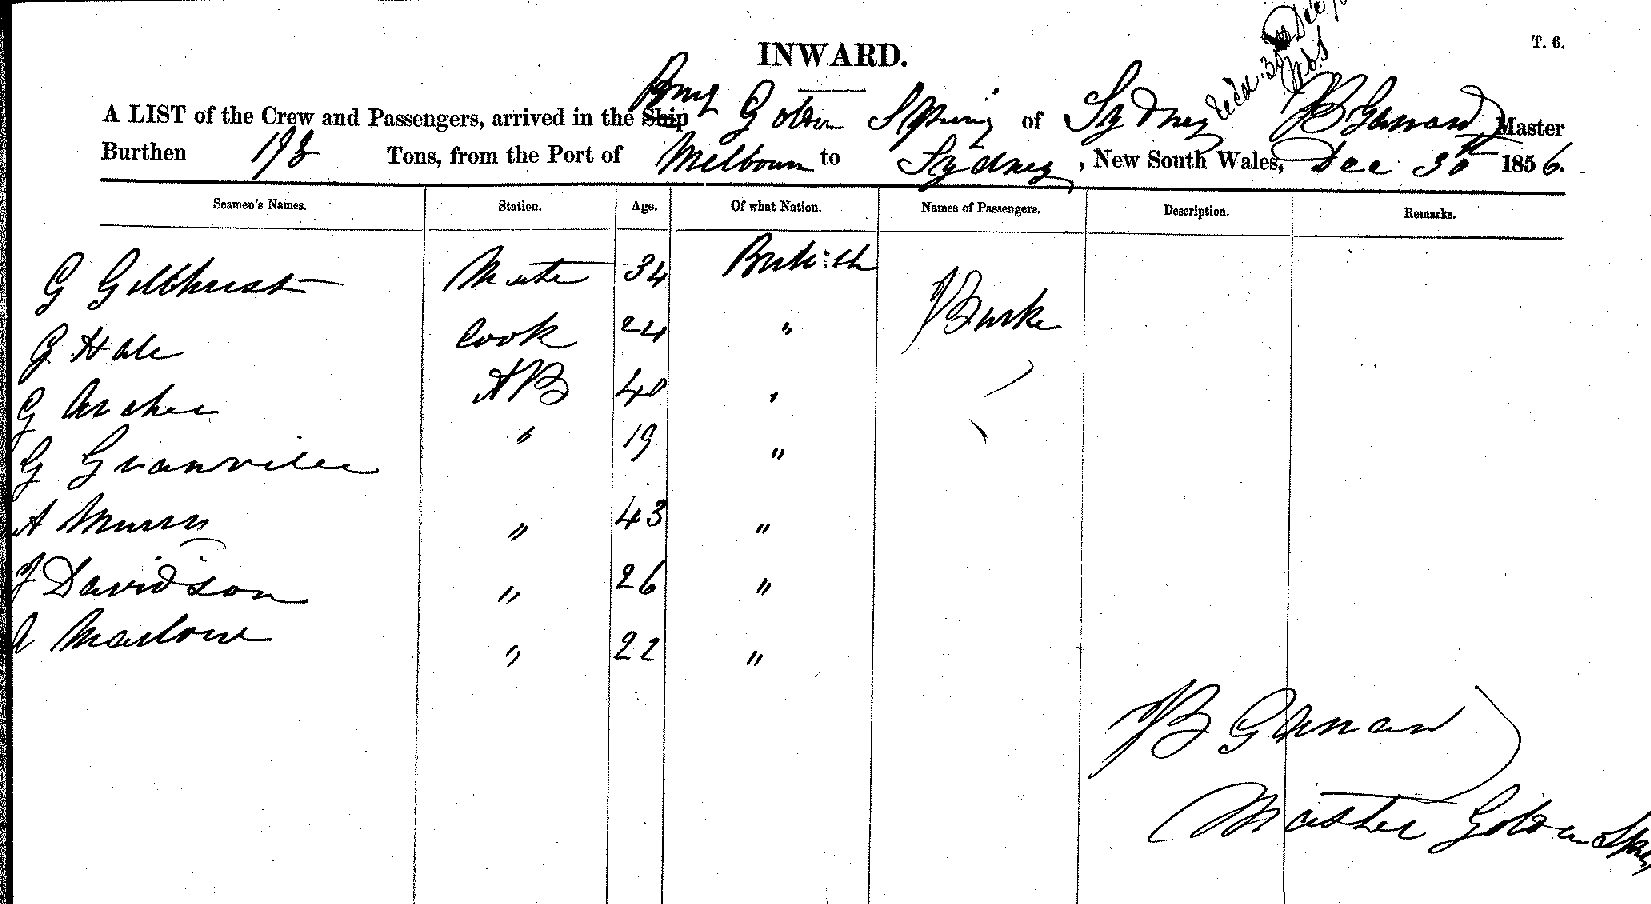 T. 6.
INWARD.
A LIST of the Crew and Passengers, arrived in the Ship Brig Golden Spring of Sydney J B Garrard Master
Burthen 198 Tons, from the Port of Melbourn to Sydney, New South Wales, Dec 30th 1856.
Seamen's Names. Station. Age. Of what Nation. Names of Passengers. Description. Remarks.
G Gilthrist Mate 34 British J Burke
G Hale Cook 24 "
G Archer AB 40 "
G Granville " 19 "
A Murry " 43 "
J Davidson " 26 "
A Marlowe " 22 "
J B
Master Golden Spring